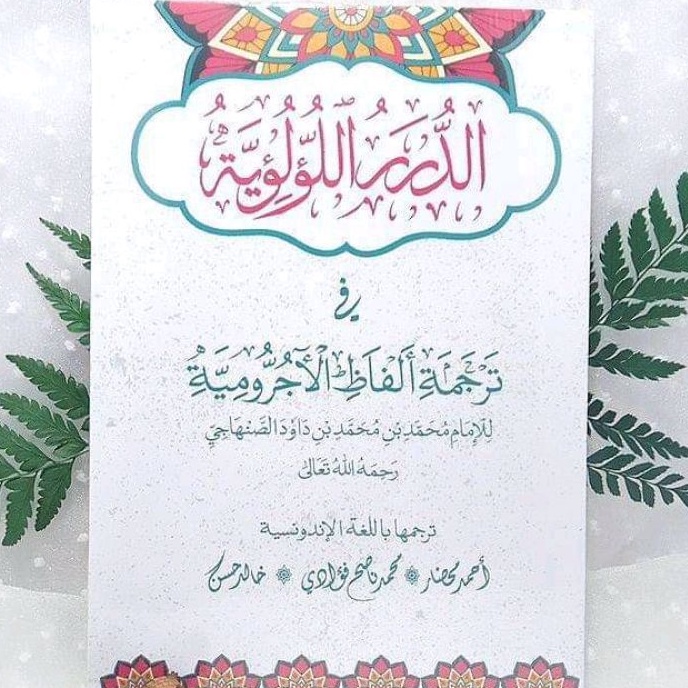 الدُّرَرُ اللُّؤْلُؤِيَّةُ
فِي
تَرْجَمَةِ أَلْفَاظِ الْآجُرُّومِيَّةِ
لِلْإِمَامِ مُحَمَّدِ بْنِ مُحَمَّدِ بْنِ دَاوُدَ الصَّنْهَاجِيِّ
رَحِمَهُ اللهُ تَعَالَى
ترجمها باللغة الإندونسية
أحمد محضار محمد ناصح فؤادي خالد حسن